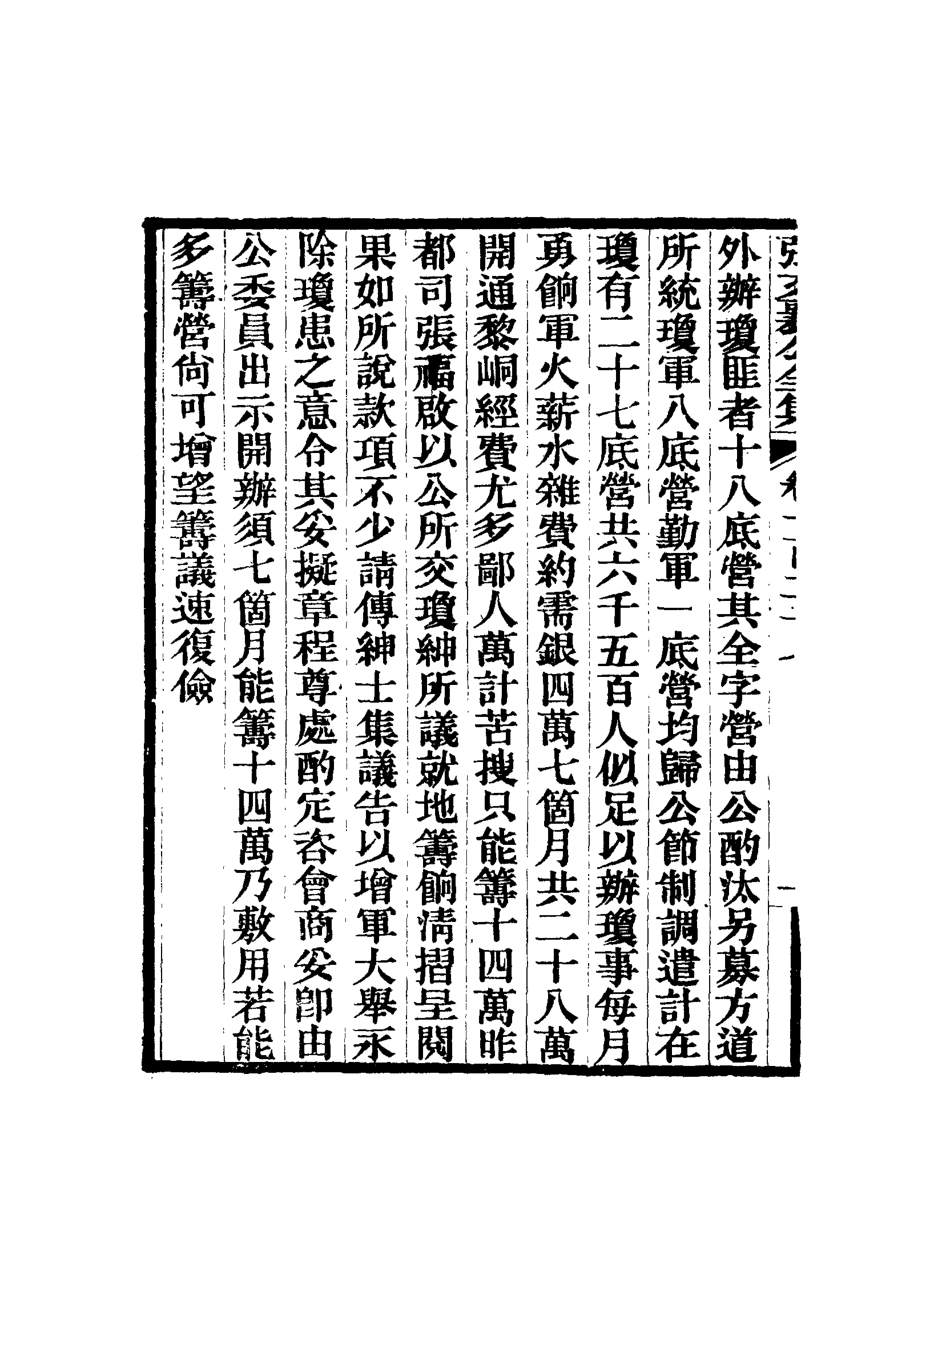 張文襄公全集 卷一百二十
外辦瓊匪者十八底營其全字營由公酌汰另募方道
所統瓊軍八底營勤軍一底營均歸公節制調遣計在
瓊有二十七底營共六千五百人似足以辦瓊事每月
勇餉軍火薪水雜費約需銀四萬七箇月共二十八萬
開通黎峒經費尤多鄙人萬計苦搜只能籌十四萬昨
都司張福啟以公所交瓊紳所議就地籌餉清摺呈閱
果如所說款項不少請傳紳士集議告以增軍大舉永
除瓊患之意令其妥擬章程尊處酌定咨會商妥卽由
公委員出示開辦須七箇月能籌十四萬乃敷用若能
多籌營尙可增望籌議速復儉